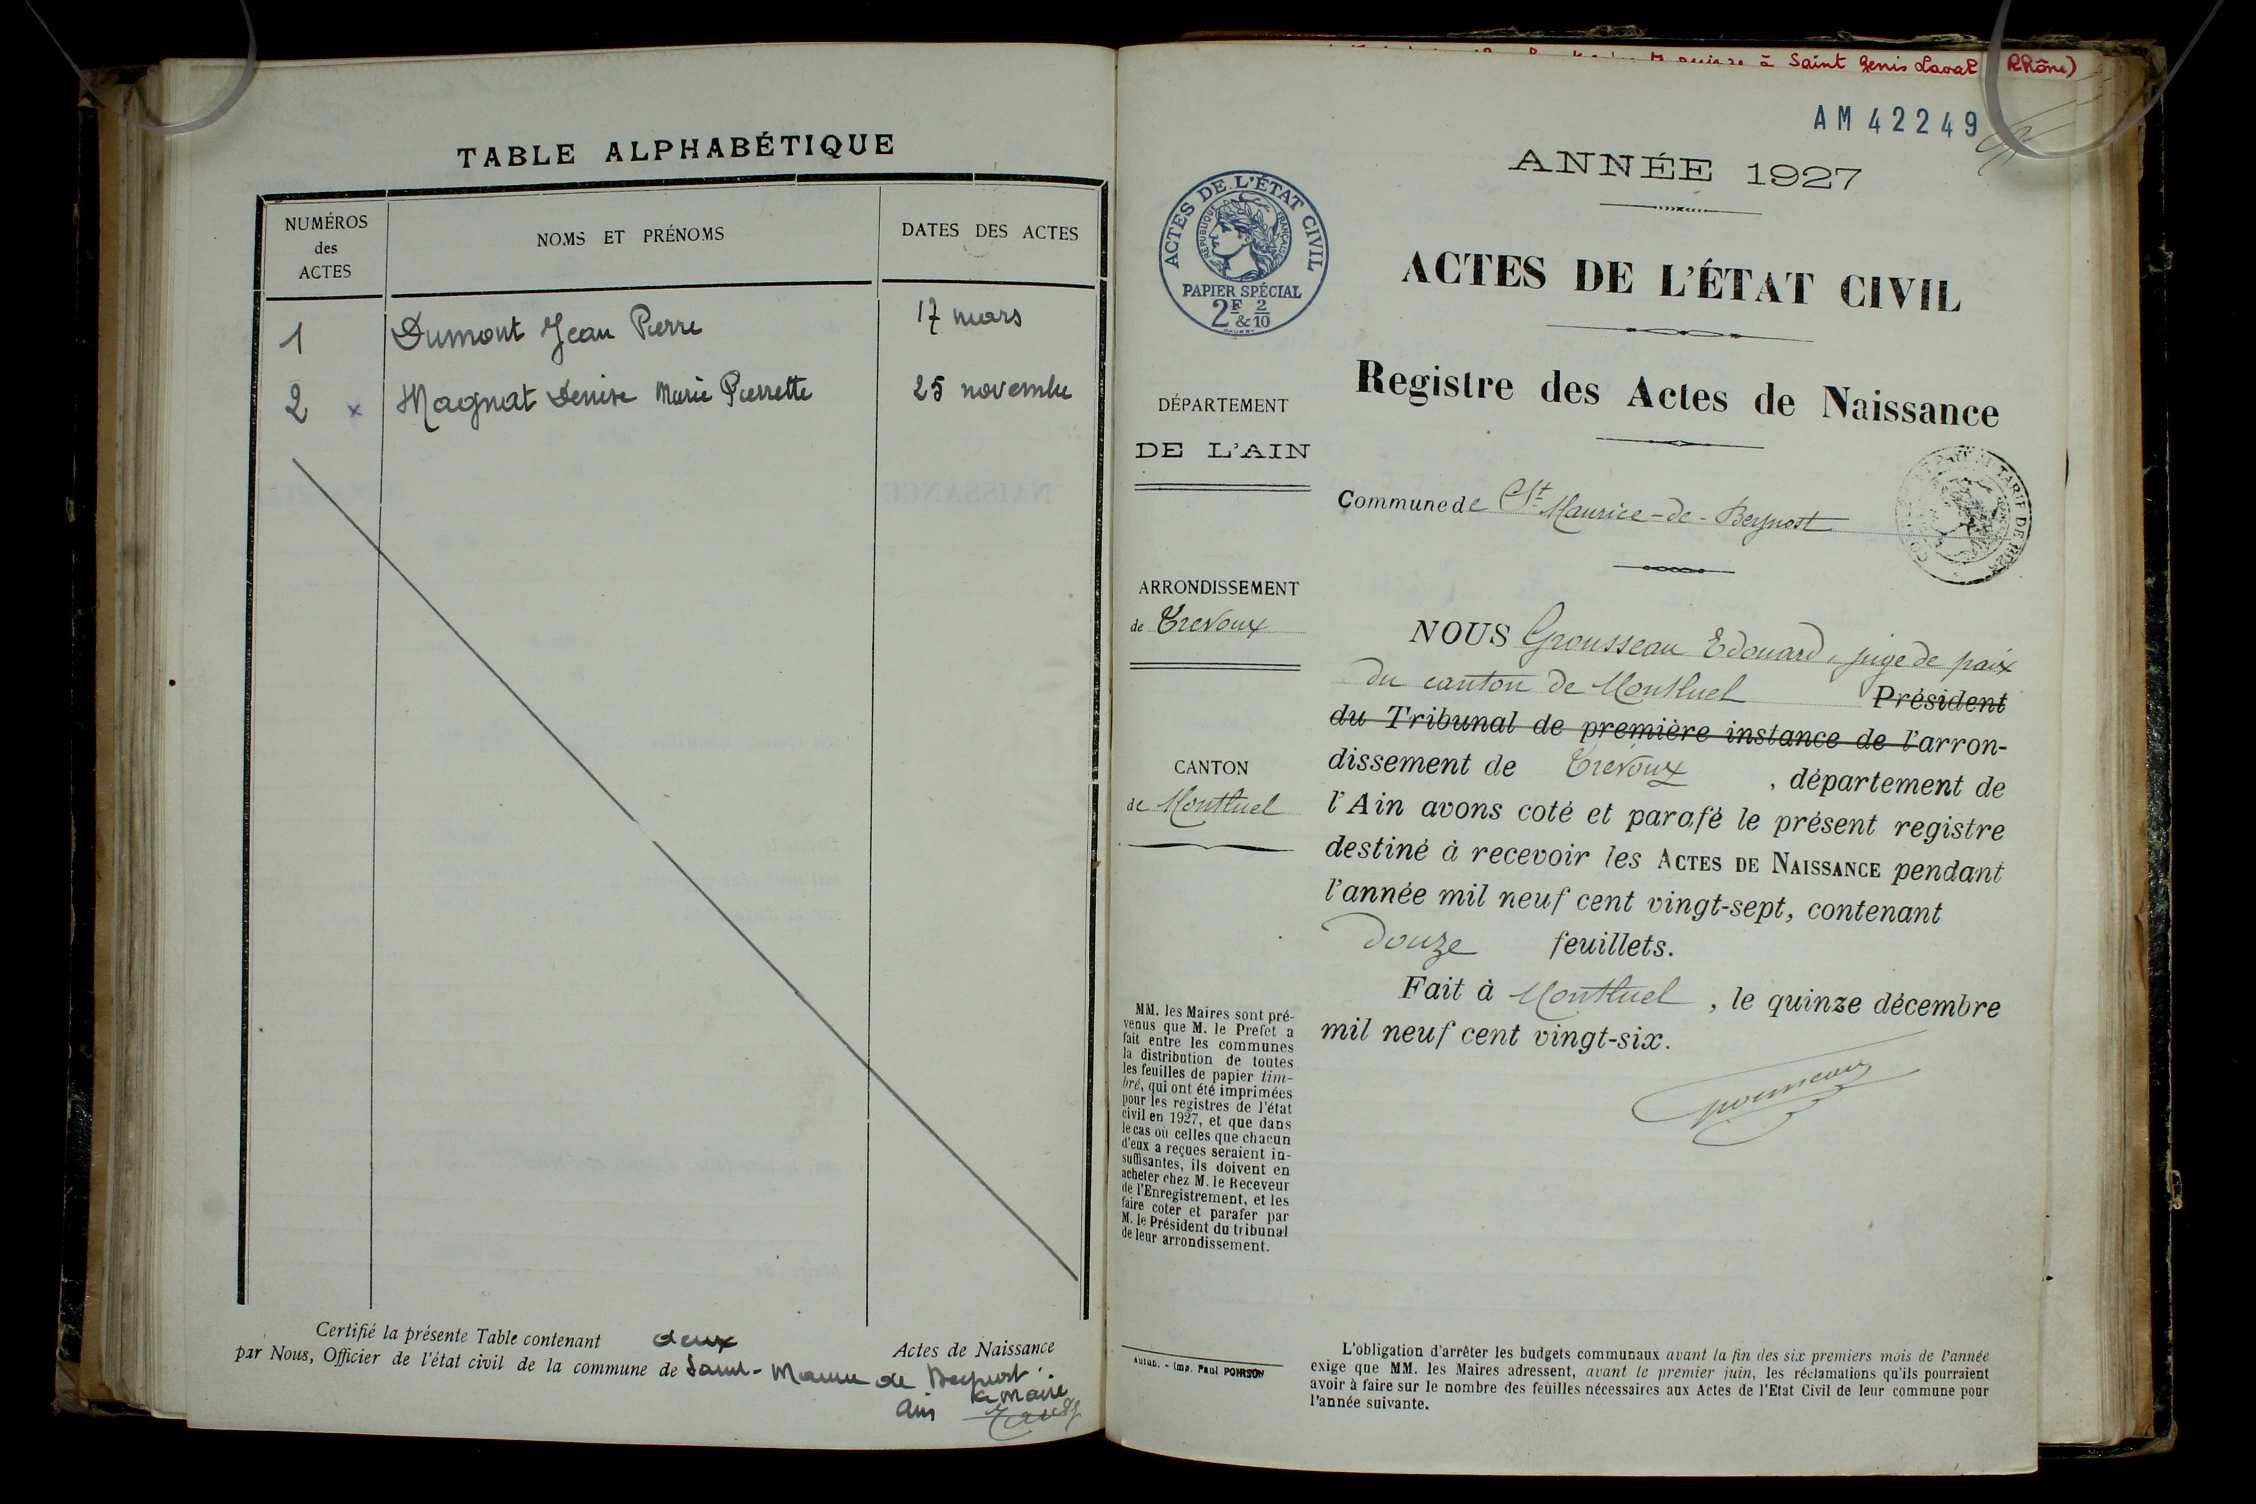 TABLE ALPHABÉTIQUE
NUMÉROS
des
ACTES
NOMS ET PRÉNOMS
DATES DES ACTES
1 Dumont Jean Pierre 17 mars
2 x Magnat Denise Marie Pierrette 25 novembre
Certifié la présente Table contenant deux Actes de Naissance
par Nous, Officier de l'état civil de la commune de Saint-Maurice de Beynost
Le Maire
Ain
à Saint Genis Laval (Rhône)
AM 42249
ANNÉE 1927
ACTES DE L'ÉTAT CIVIL
RÉPUBLIQUE FRANÇAISE
PAPIER SPÉCIAL
2F & 2/10
ACTES DE L'ÉTAT CIVIL
Registre des Actes de Naissance
DÉPARTEMENT
DE L'AIN
Commune de St Maurice-de-Beynost
ARRONDISSEMENT
de Trévoux
CANTON
de Montluel
NOUS Grousseau Edouard, juge de paix
du canton de Montluel Président
du Tribunal de première instance de l'arron-
dissement de Trévoux, département de
l'Ain avons coté et parafé le présent registre
destiné à recevoir les ACTES DE NAISSANCE pendant
l'année mil neuf cent vingt-sept, contenant
douze feuillets.
Fait à Montluel, le quinze décembre
mil neuf cent vingt-six.
Grousseau
MM. les Maires sont pré-
venus que M. le Préfet a
fait entre les communes
la distribution de toutes
les feuilles de papier tim-
bré, qui ont été imprimées
pour les registres de l'état
civil en 1927, et que dans
le cas où celles que chacun
d'eux a reçues seraient in-
suffisantes, ils doivent en
acheter chez M. le Receveur
de l'Enregistrement, et les
faire coter et parafer par
M. le Président du tribunal
de leur arrondissement.
Autun. - Imp. Paul POHRSON
L'obligation d'arrêter les budgets communaux avant la fin des six premiers mois de l'année
exige que MM. les Maires adressent, avant le premier juin, les réclamations qu'ils pourraient
avoir à faire sur le nombre des feuilles nécessaires aux Actes de l'Etat Civil de leur commune pour
l'année suivante.